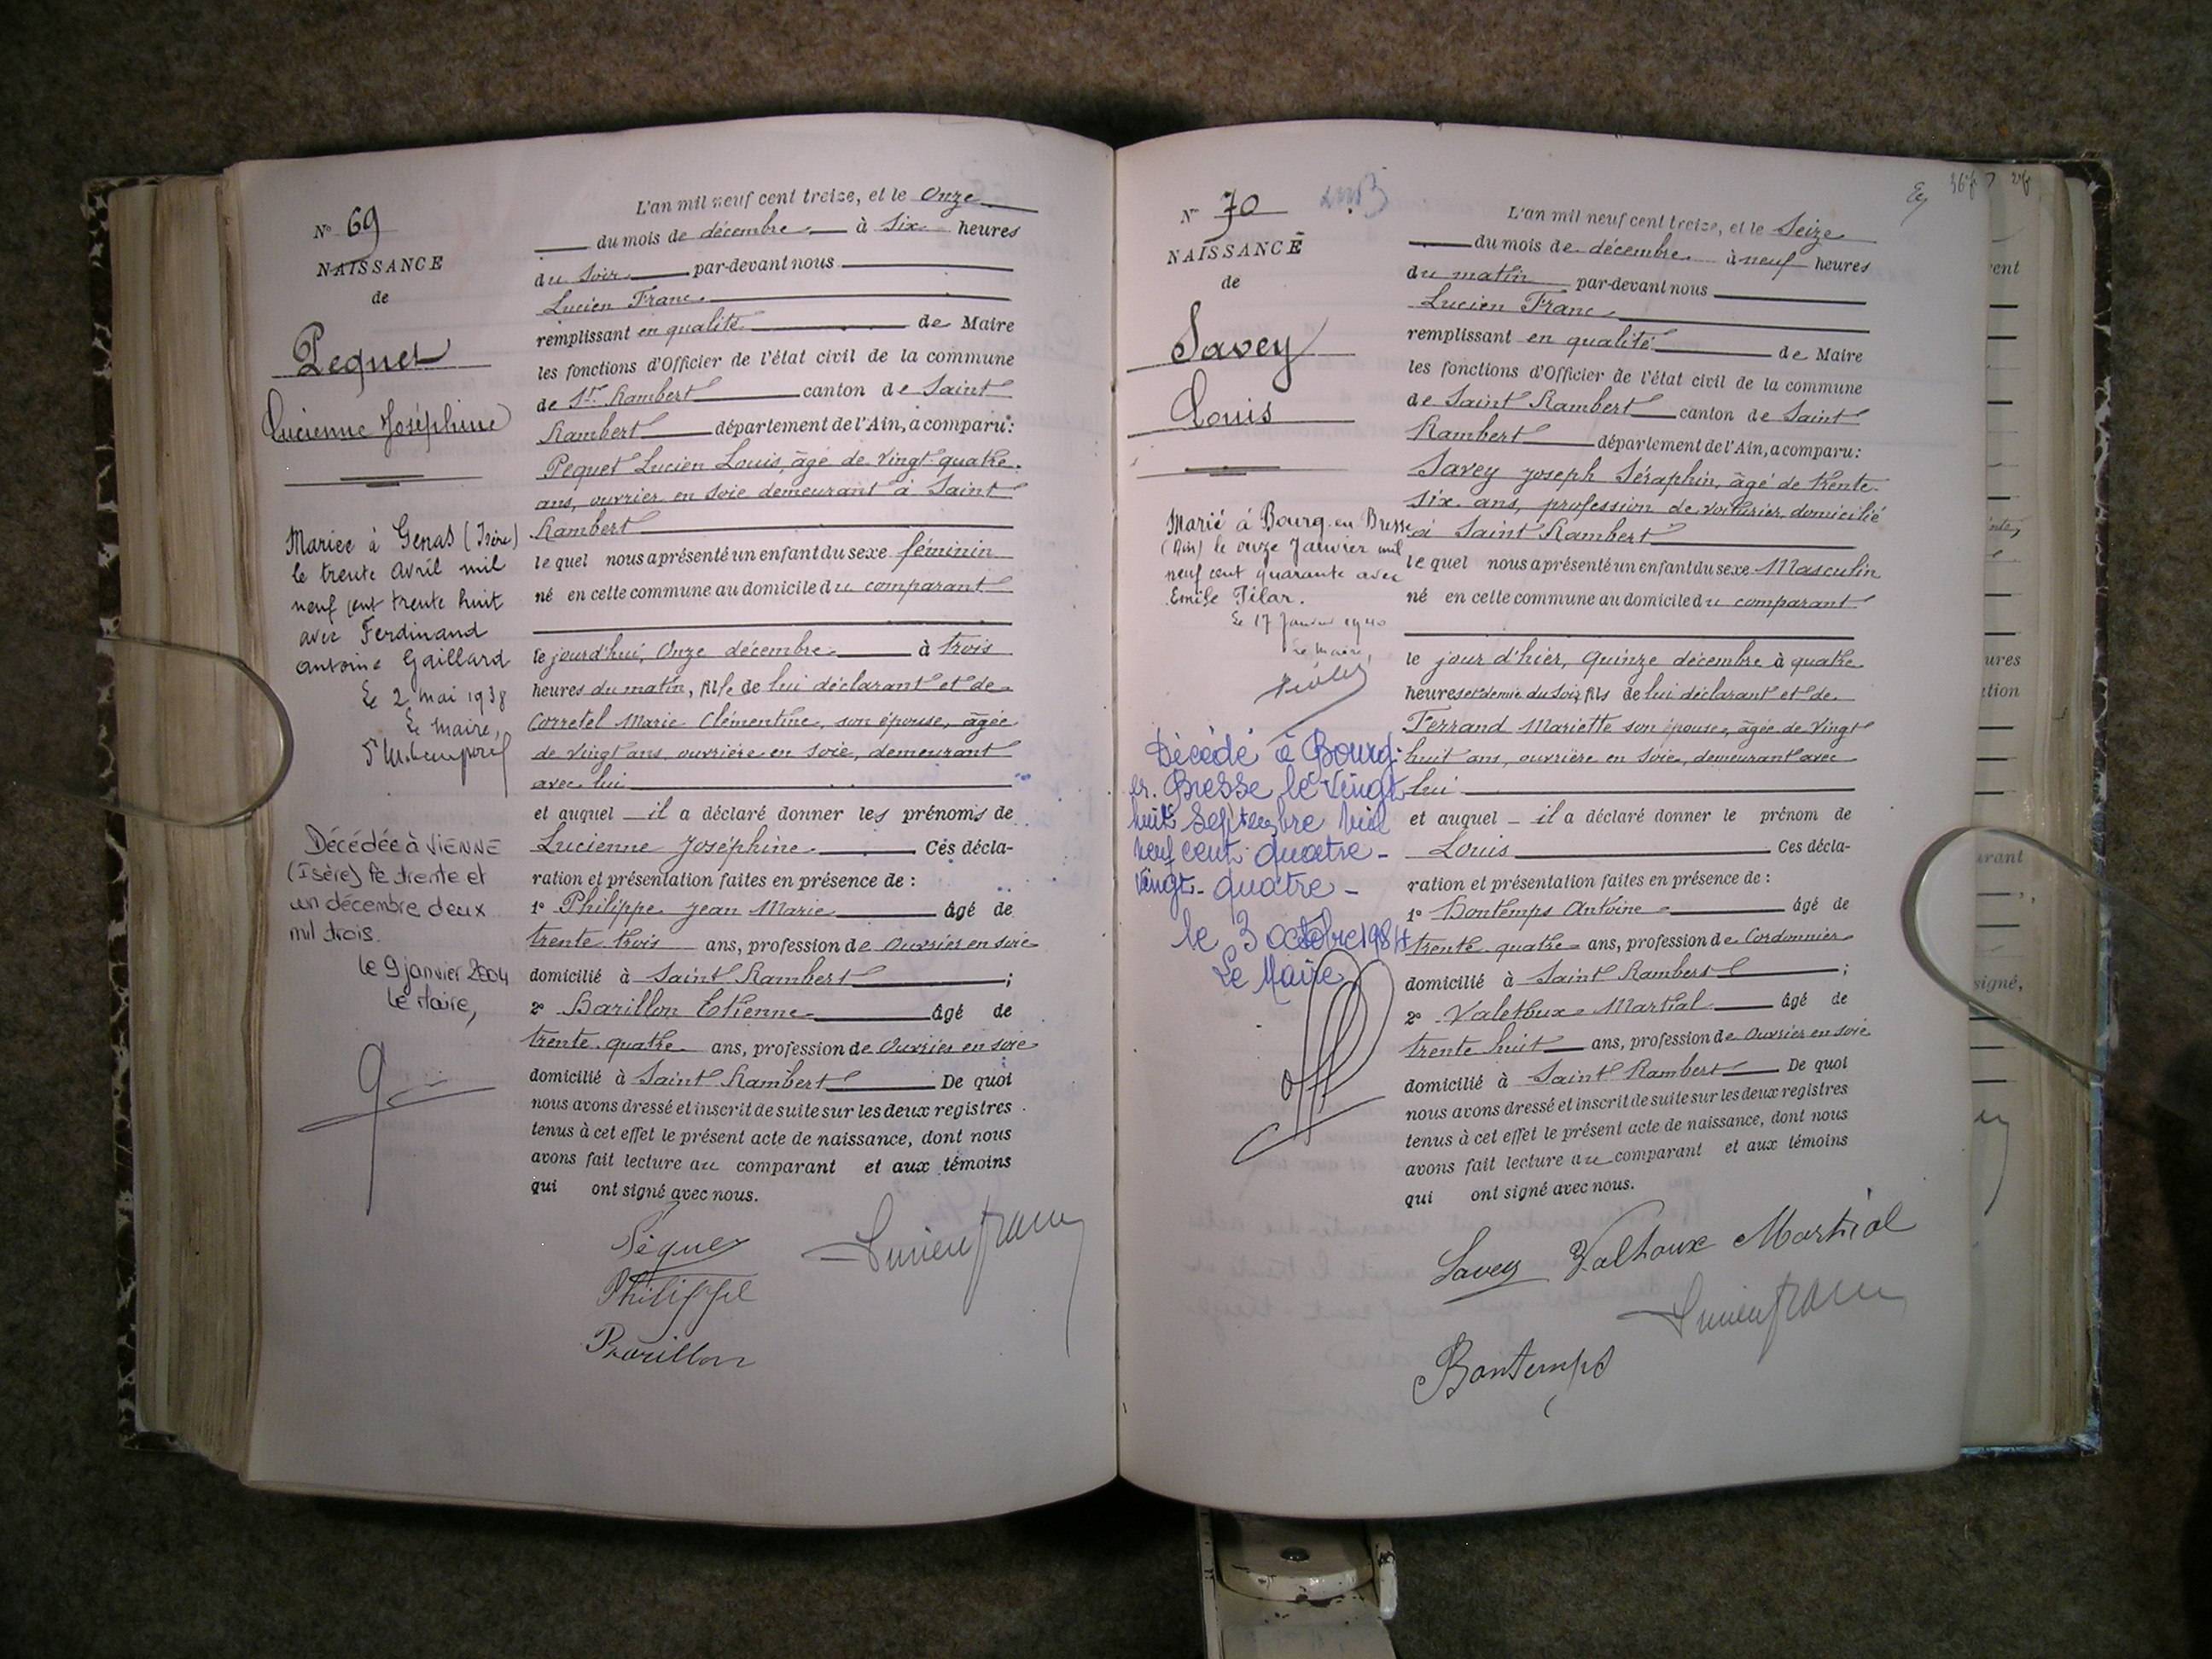 Nº 69
NAISSANCE
de
Pequet
Lucienne Joséphine
Mariée à Genas (Isère)
le trente Avril mil
neuf cent trente huit
avec Ferdinand
Antoine Gaillard
Le 2 mai 1938
Le Maire,
Décédée à VIENNE
(Isère) le trente et
un décembre deux
mil trois.
le 9 janvier 2004
Le Maire,
L'an mil neuf cent treize, et le Onze
du mois de décembre à Six heures
du Soir par-devant nous
Lucien Franc
remplissant en qualité de Maire
les fonctions d'Officier de l'état civil de la commune
de St. Rambert canton de Saint
Rambert département de l'Ain, a comparu:
Pequet Lucien Louis, âgé de vingt-quatre
ans, ouvrier en soie demeurant à Saint
Rambert
le quel nous a présenté un enfant du sexe féminin
né en cette commune au domicile du comparant
le jourd'hui, Onze décembre à trois
heures du matin, fille de lui déclarant et de
Corretel Marie Clémentine, son épouse, âgée
de vingt ans, ouvrière en soie, demeurant
avec lui
et auquel il a déclaré donner les prénoms de
Lucienne Joséphine Ces décla-
ration et présentation faites en présence de :
1º Philippe Jean Marie âgé de
trente trois ans, profession de Ouvrier en soie
domicilié à Saint Rambert ;
2º Barillon Etienne âgé de
trente-quatre ans, profession de Ouvrier en soie
domicilié à Saint Rambert De quoi
nous avons dressé et inscrit de suite sur les deux registres
tenus à cet effet le présent acte de naissance, dont nous
avons fait lecture au comparant et aux témoins
qui ont signé avec nous.
Péquet
Lucien Franc
Philippe
Barillon
Nº 70
NAISSANCE
de
Savey
Louis
Marié à Bourg-en-Bresse
(Ain) le onze Janvier mil
neuf cent quarante avec
Emile Pilar.
Le 17 Janvier 1940
Le Maire,
Décédé à Bourg-
en-Bresse le Vingt
huit Septembre mil
neuf cent quatre-
Vingt-quatre-
le 3 octobre 1984
Le Maire
L'an mil neuf cent treize, et le Seize
du mois de décembre à neuf heures
du matin par-devant nous
Lucien Franc
remplissant en qualité de Maire
les fonctions d'Officier de l'état civil de la commune
de Saint Rambert canton de Saint
Rambert département de l'Ain, a comparu:
Savey Joseph Séraphin, âgé de trente-
six ans, profession de voiturier, domicilié
à Saint Rambert
le quel nous a présenté un enfant du sexe Masculin
né en cette commune au domicile du comparant
le jour d'hier, Quinze décembre à quatre
heures et demie du Soir, fils de lui déclarant et de
Ferrand Mariette son épouse, âgée de Vingt
huit ans, ouvrière en soie, demeurant avec
lui
et auquel il a déclaré donner le prénom de
Louis Ces décla-
ration et présentation faites en présence de :
1º Bontemps Antoine âgé de
trente quatre ans, profession de Cordonnier
domicilié à Saint Rambert ;
2º Valetoux Martial âgé de
trente huit ans, profession de Ouvrier en soie
domicilié à Saint Rambert De quoi
nous avons dressé et inscrit de suite sur les deux registres
tenus à cet effet le présent acte de naissance, dont nous
avons fait lecture au comparant et aux témoins
qui ont signé avec nous.
Savey Valhoux Martial
Lucien Franc
Bontemps
ures
signé,